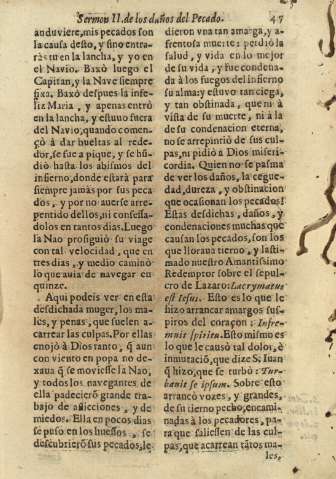 Sermon II. de los daños del Pecado. 47
anduviere, mis pecados son
la causa desto, y sino entra-
rà tu en la lancha, y yo en
el Navio. Baxò luego el
Capitan, y la Nave siempre
fixa. Baxò despues la infe-
liz Maria, y apenas entrò
en la lancha, y estuvo fuera
del Navio, quando comen-
çò à dar bueltas al rede-
dor, se fue à pique, y se hũ-
diò hasta los abismos del
infierno, donde estarà para
siempre jamàs por sus peca-
dos, y por no averse arre-
pentido dellos, ni confessa-
dolos en tantos dias. Luego
la Nao prosiguiò su viage
con tal velocidad, que en
tres dias, y medio caminò
lo que avia de navegar en
quinze.
Aqui podeis ver en esta
desdichada muger, los ma-
les, y penas, que suelen a-
carrear las culpas. Por ellas
enojò à Dios tanto, q̃ aun
con viento en popa no de-
xaua q̃ se moviesse la Nao,
y todos los navegantes de
ella padecierõ grande tra-
bajo de aflicciones, y de
miedos. Ella en pocos dias
se puso en los huessos, se
descubrierõ sus pecados, le
dieron vna tan amarga, y a-
frentosa muerte: perdiò la
salud, y vida en lo mejor
de su vida, y fue condena-
da à los fuegos del infierno
su alma: y estuvo tan ciega,
y tan obstinada, que ni à
vista de su muerte, ni à la
de su condenacion eterna,
no se arrepintiò de sus cul-
pas, ni pidiò a Dios miseri-
cordia. Quien no se pasma
de ver los daños, la cegue-
dad, dureza, y obstinacion
que ocasionan los pecados!
Estas desdichas, daños, y
condenaciones muchas que
causan los pecados, son los
que llorava tierno, y lasti-
mado nuestro Amantissimo
Redemptor sobre el sepul-
cro de Lazaro: Lacrymatus
est Iesus. Esto es lo que le
hizo arrancar amargos sus-
piros del coraçon: Infre-
muit spiritu. Esto mismo es
lo que le causò tal dolor, è
inmutaciõ, que dize S. Iuan
q̃ hizo, que se turbò: Tur-
bavit se ipsum. Sobre esto
arrancò vozes, y grandes,
de su tierno pecho, encami-
nadas à los pecadores, pa-
ra que saliessen de las cul-
pas, que acarrean tãtos ma-
les,